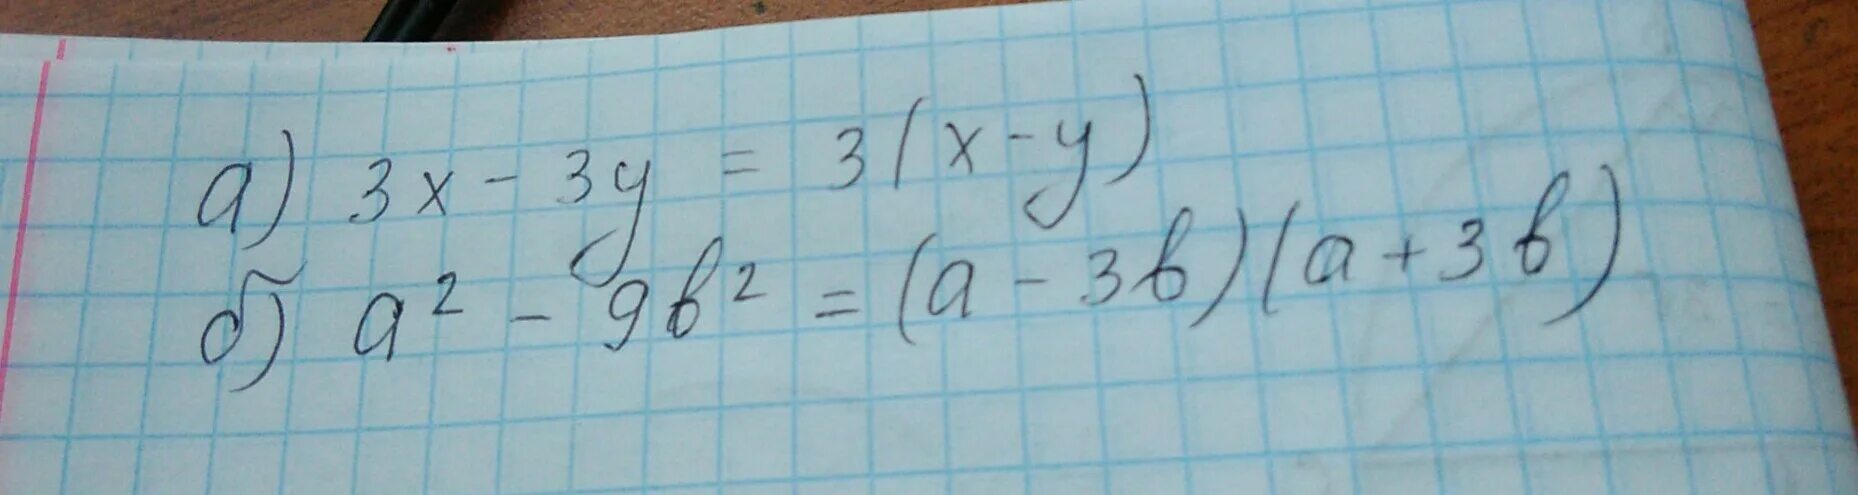 а) 3x - 3y = 3(x - y)
б) a² - 9b² = (a - 3b)(a + 3b)